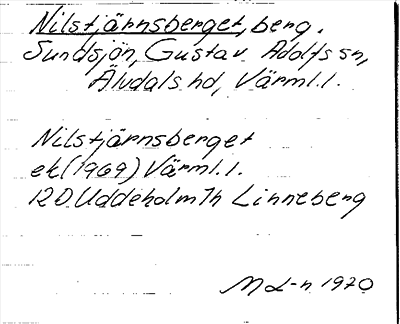 Nilstjärnsberget, berg.
Sundsjön, Gustav Adolfs sn,
Älvdals hd, Värml.l.
Nilstjärnsberget
ek (1969) Värml.l.
12D Uddeholm 7h Linneberg
M L-n 1970